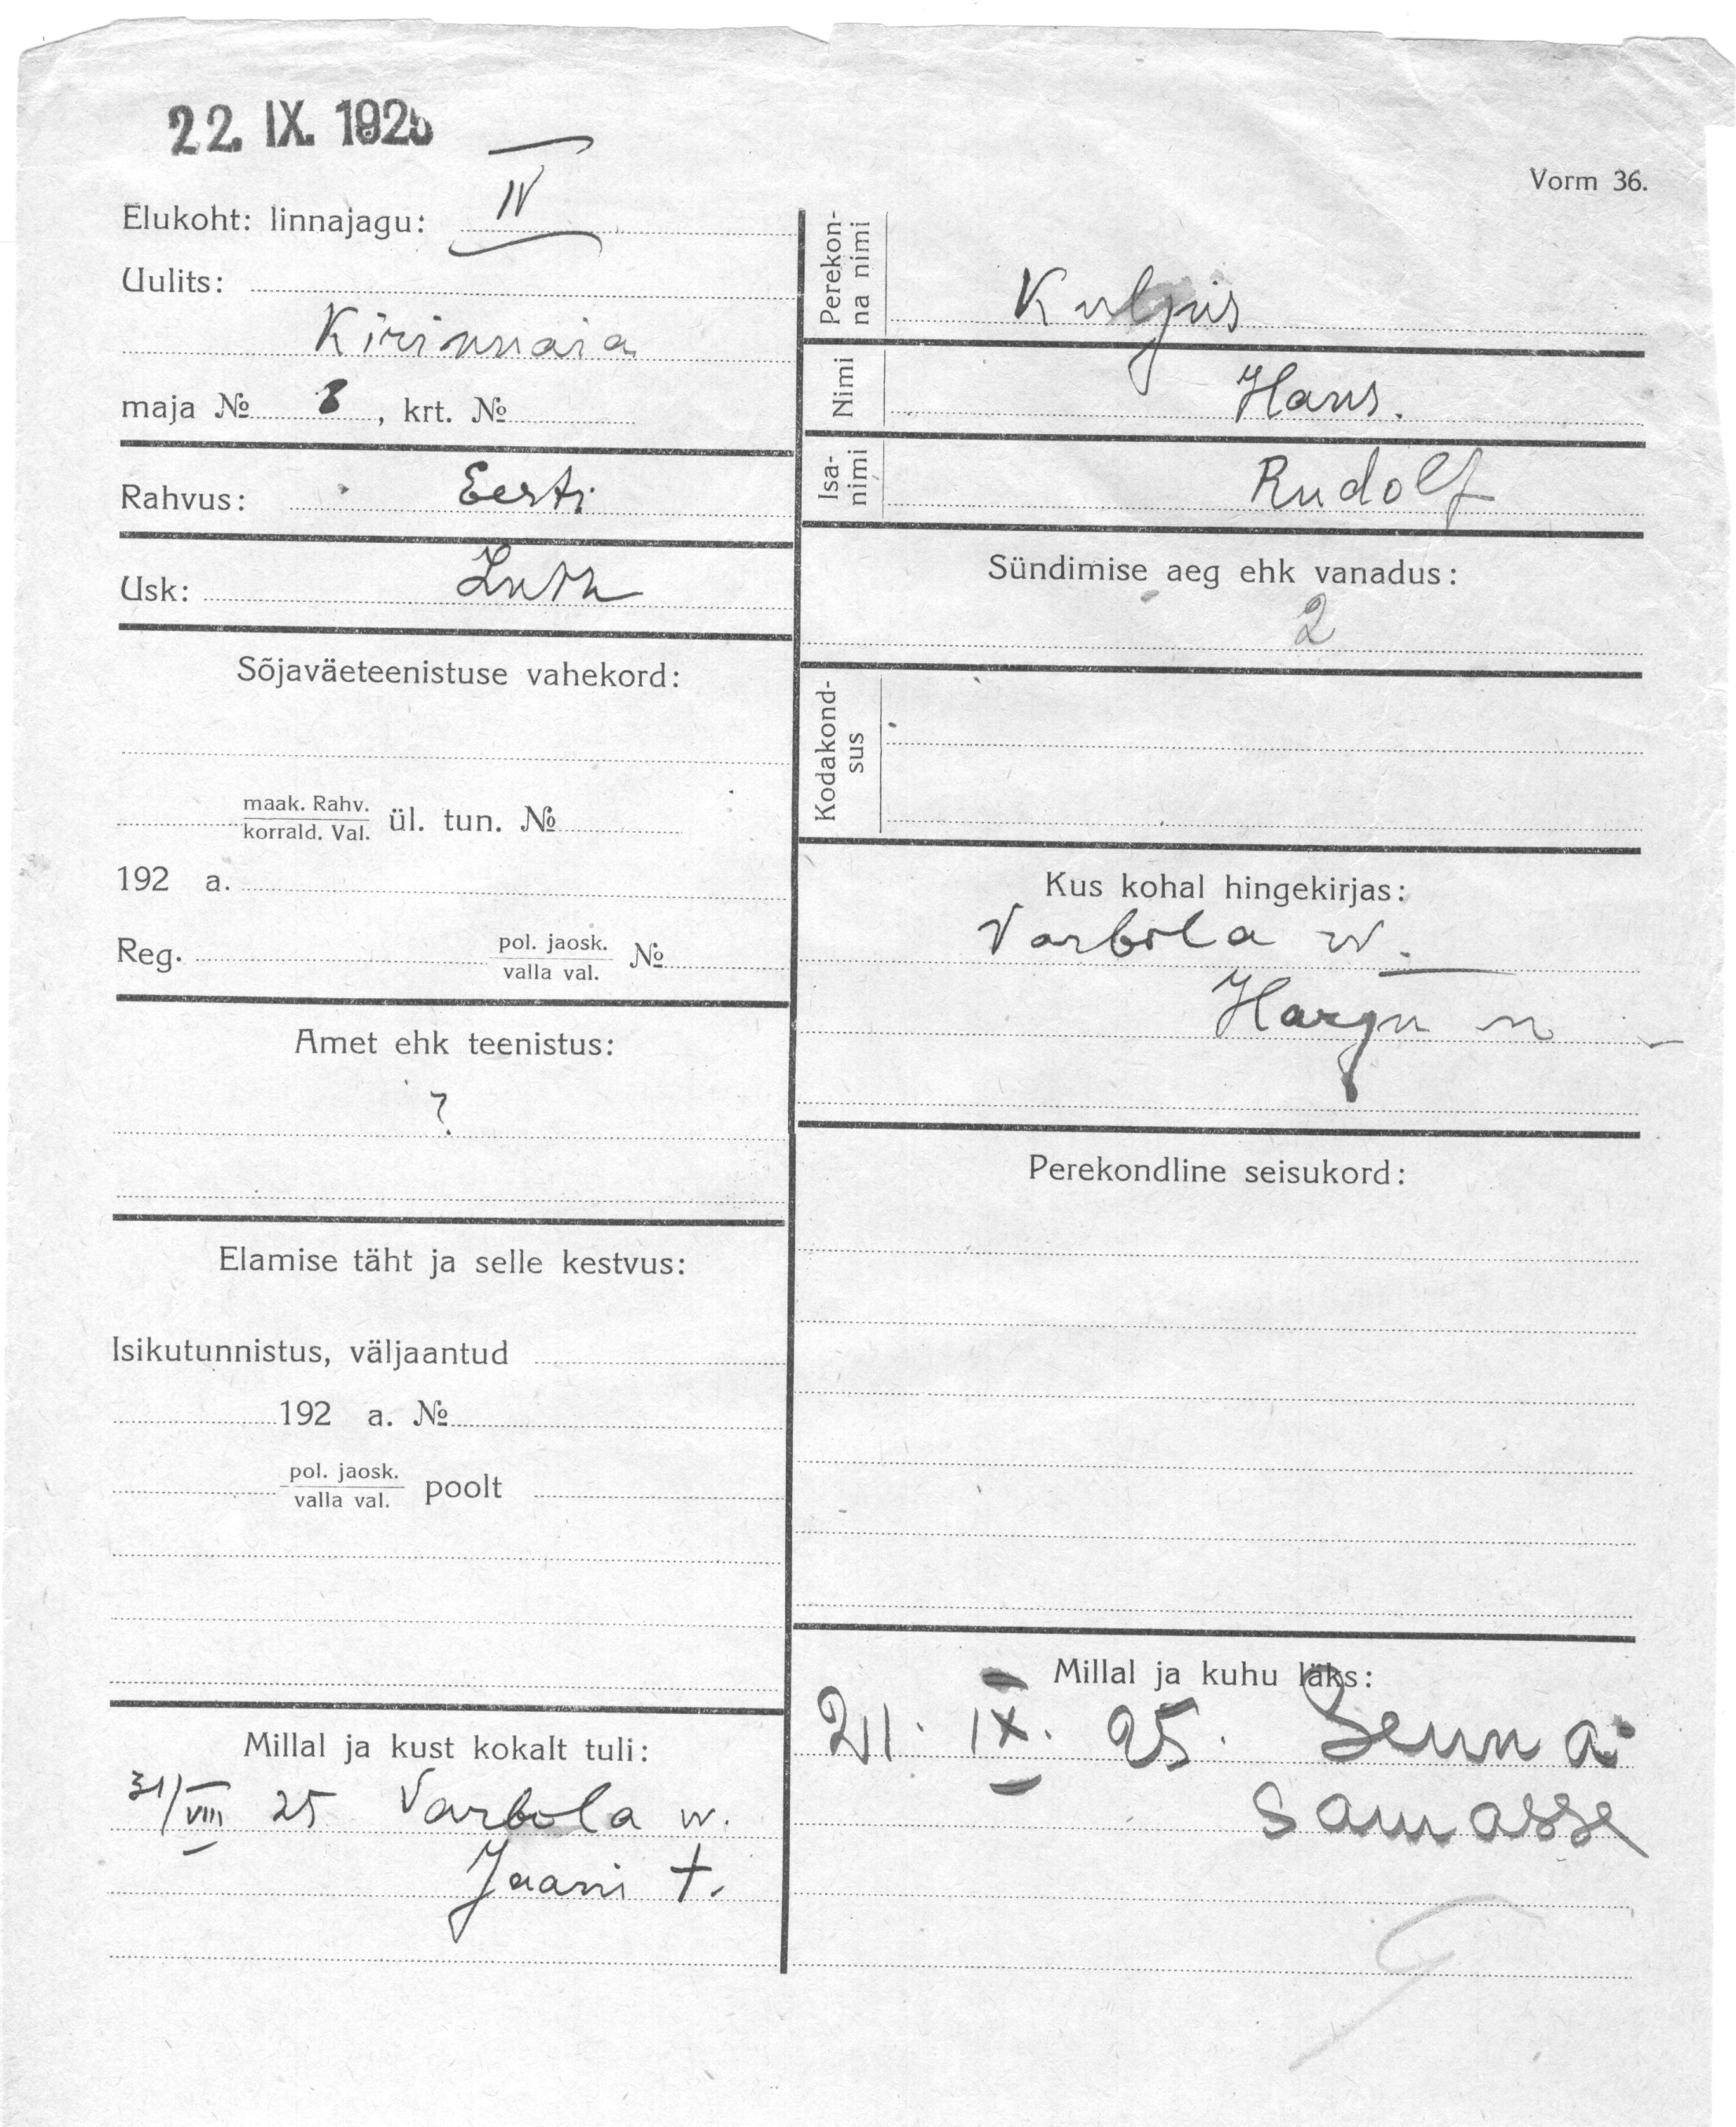 22. IX. 1925
Vorm 36.
Elukoht: linnajagu: IV
Uulits:
Kirimäia
maja № 8, krt. №
Rahvus: Eesti
Usk: Luth
Sõjaväeteenistuse vahekord:
maak. Rahv.
korrald. Val. ül. tun. №
192 a.
Reg. pol. jaosk. №
valla val.
Amet ehk teenistus:
?
Elamise täht ja selle kestvus:
Isikutunnistus, väljaantud
192 a. №
pol. jaosk.
valla val. poolt
Millal ja kust kokalt tuli:
31/VIII 25 Varbola w.
Jaani t.
Perekon-
na nimi
Kuljus
Nimi Hans.
Isa-
nimi Rudolf
Sündimise aeg ehk vanadus:
2
Kodakond-
sus
Kus kohal hingekirjas:
Varbola w.
Harju m
Perekondline seisukord:
Millal ja kuhu läks:
21. IX. 25. Senna
samasse